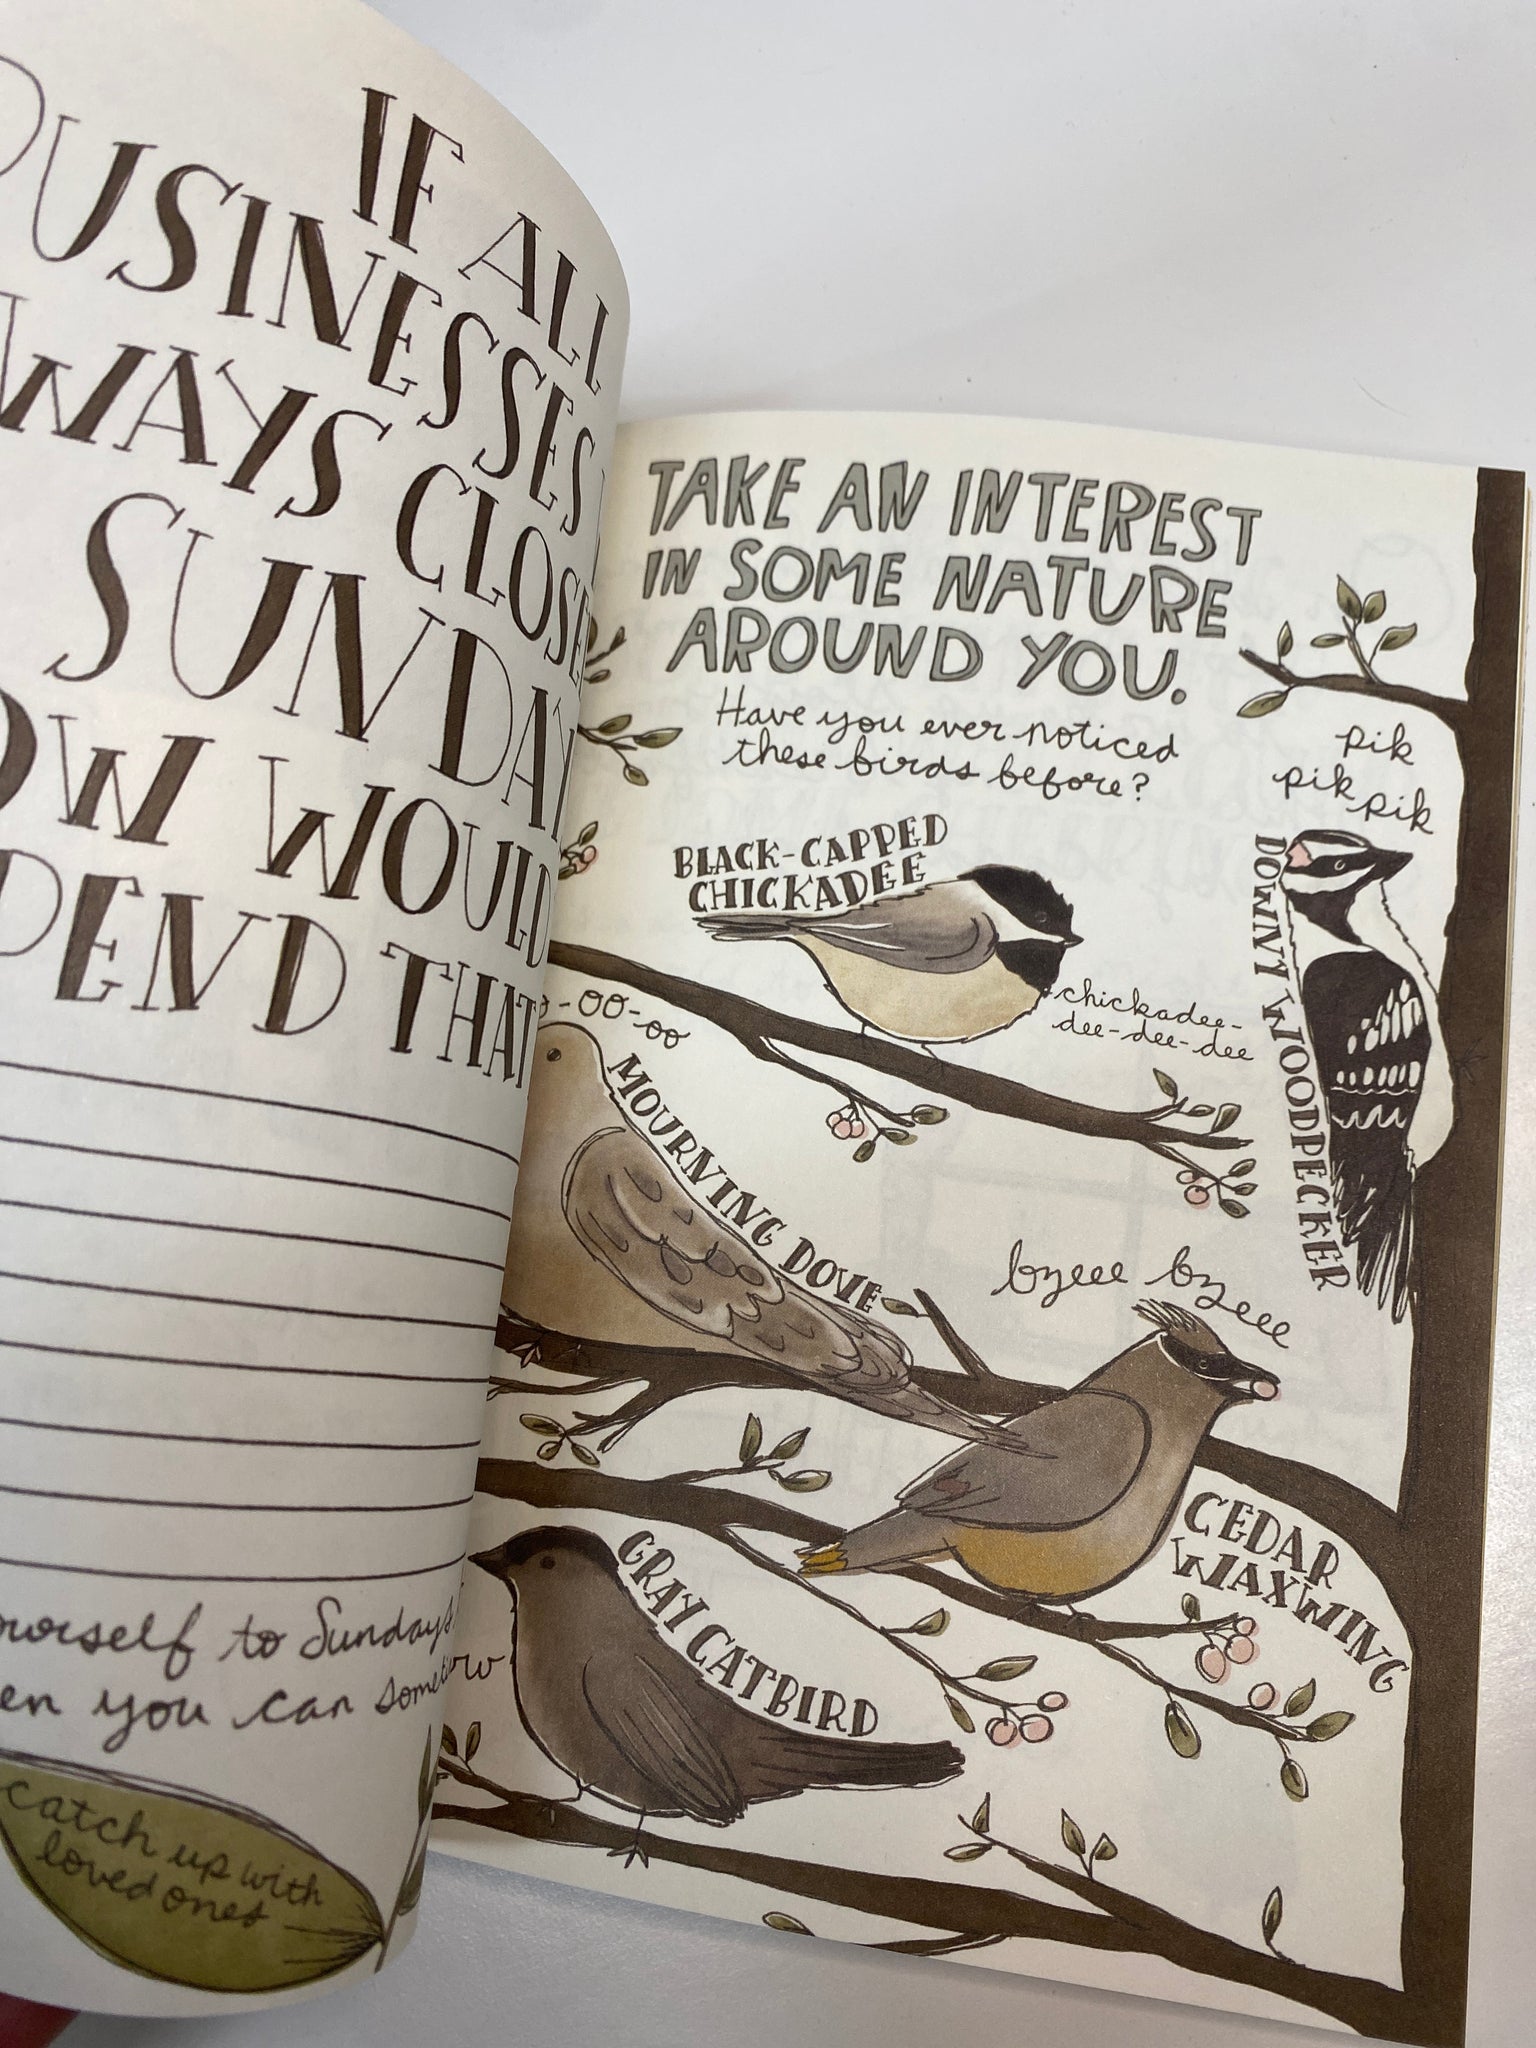 IF ALL
BUSINESSES
WAYS CLOSE
SUNDAY
OW WOULD
PEND THAT
ourself to Sundays
en you can
catch up with
loved ones
TAKE AN INTEREST
IN SOME NATURE
AROUND YOU.
Have you ever noticed
these birds before?
pik
pik pik
DOWNY WOODPECKER
BLACK-CAPPED
CHICKADEE
chickadee-
dee-dee-dee
-OO-oo
MOURNING DOVE
byeee byeee
CEDAR
WAXWING
GRAY CATBIRD